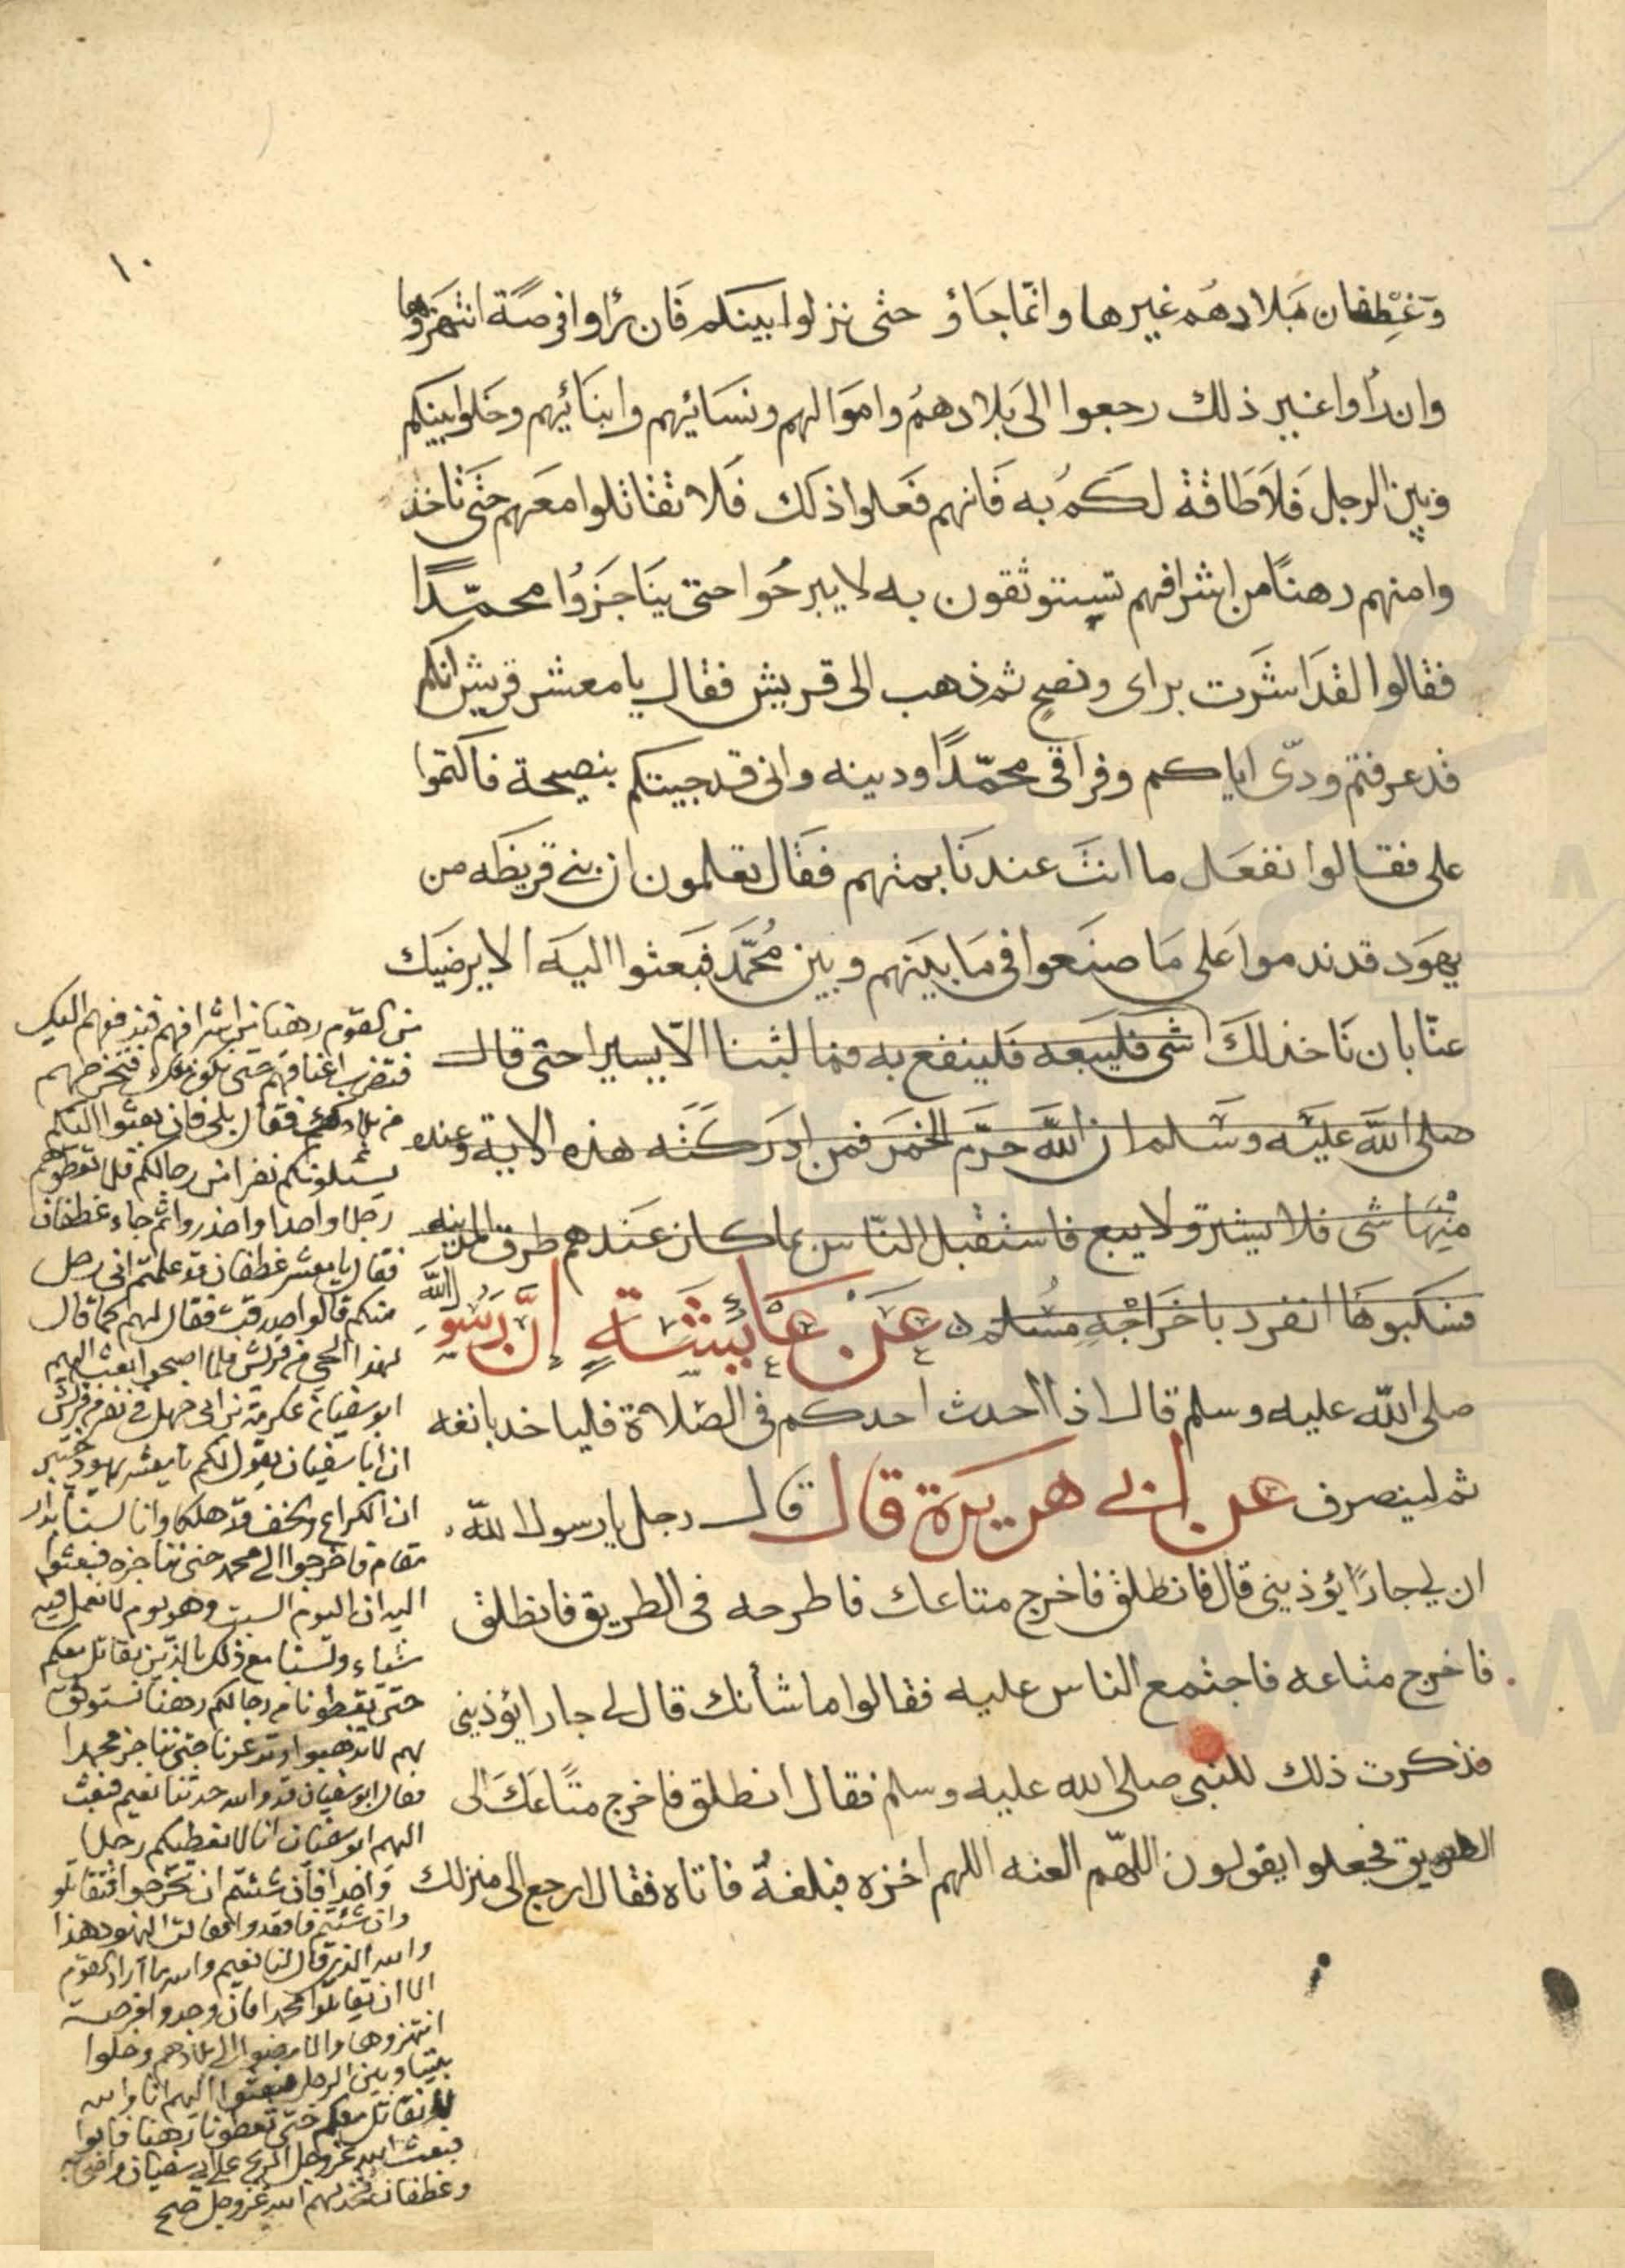 ١٠
وَغِطفان ببلادهم غيرها وانما جاؤ حتى نزلوا بينكم فان رأوا فرصة انتهزوها
وان رأوا غير ذلك رجعوا الى بلادهم واموالهم ونسائهم وابنائهم وخلوا بينكم
وبين الرجل فلا طاقة لكم به فانهم فعلوا ذلك فلا تقاتلوا معهم حتى تاخذ
وا منهم رهنا من اشرافهم تستوثقون به لا يبرحوا حتى يناجزوا محمّدًا
فقالوا لقد اشرت براى ونصح ثم ذهب الى قريش فقال يا معشر قريش انكم
قد عرفتم ودّى اياكم وفراقى محمّدًا ودينه وانى قد جيتكم بنصيحة فاكتموا
على فقالوا نفعل ما انت عندنا بمتهم فقال تعلمون ان بنى قريظه من
يهود قد ندموا على ما صنعوا فى ما بينهم وبين محمّد فبعثوا اليه الا يرضيك
عنّا بان ناخذ لك شى فليبعه فلينفع به فما لبثنا الّا يسيرا حتى قال
صلى الله عليه وسلم ان الله حرّم الخمر فمن ادركته هذه الاية وعنده
منها شى فلا يشرب ولا يبع فاستقبل الناس بما كان عندهم طرق المدينه
فسكبوها انفرد باخراجه مسلم عن عايشة إن رسول الله
صلى الله عليه وسلم قال اذا احدث احدكم فى الصّلاة فلياخد بانفه
ثم لينصرف عن ابى هريرة قال قال رجل يا رسول الله
ان لى جارًا يؤذينى قال فانطلق فاخرج متاعك فاطرحه فى الطريق فانطلق
فاخرج متاعه فاجتمع الناس عليه فقالوا ما شأنك قال لى جار ايؤذينى
فذكرت ذلك للنبى صلى الله عليه وسلم فقال انطلق فاخرج متاعك الى
الطريق فجعلوا يقولون اللهّم العنه اللهم اخزه فبلغه فاتاه فقال ارجع الى منزلك
من القوم رهنا من اشرافهم فندفعهم اليك
فتضرب اعناقهم حتى نكون معك فتخرجهم
من بلادهم فقال بلى فان بعثوا اليكم
يسئلونكم نفرا من رجالكم فلا تعطوهم
رجلا واحدا واحذروا ثم جاء غطفان
فقال يا معشر غطفان قد علمتم انى رجل
منكم قالوا صدقت فقال لهم كما قال
لهذا الحى من قريش فلما اصبحوا بعث اليهم
ابو سفيان عكرمة بن ابى جهل فى نفر من قريش
ان ابا سفيان يقول لكم يا معشر يهود
ان الكراع والخف قد هلكا وانا لسنا بدار
مقام فاخرجوا الى محمد حتى نناجزه فبعثوا
اليه ان اليوم السبت وهو يوم لا نعمل فيه
شياء ولسنا مع ذلك بالذين نقاتل معكم
حتى تعطونا من رجالكم رهنا نستوثق
بهم لا تذهبوا وتدعونا حتى نناجز محمدا
فقال ابو سفيان قد والله حدثنا نعيم فبعث
اليهم ابو سفيان انا لا نعطيكم رجلا
واحدا فان شئتم ان تخرجوا فتقاتلو
وان شئتم فاقعدوا فقالت اليهود هذا
والله الذى قال لنا نعيم والله ما اراد القوم
الا ان تقاتلوا محمدا فان وجدوا فرصة
انتهزوها والا مضوا الى بلادهم وخلوا
بيننا وبين الرجل فبعثوا اليهم انا والله
لا نقاتل معكم حتى تعطونا رهنا فابوا
فبعث الله عز وجل الريح على ابى سفيان واصحابه
وغطفان فخذلهم الله عز وجل صح